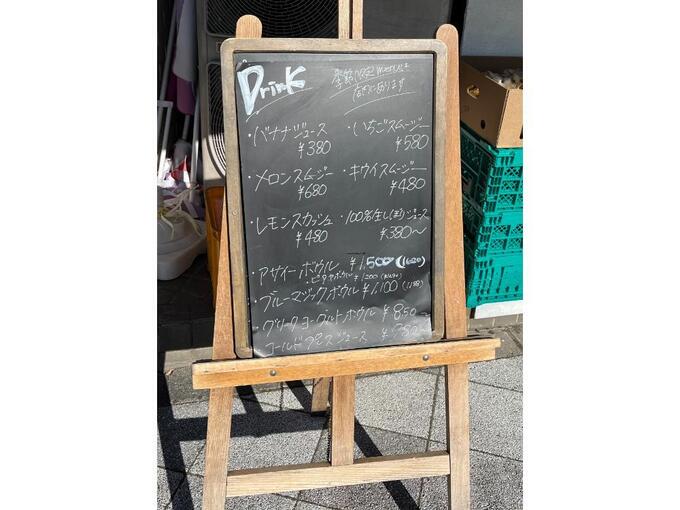 Drink 季節限定menuは
店内にあります
・バナナジュース
¥380
・いちごスムージー
¥580
・メロンスムージー
¥680
・キウイスムージー
¥480
・レモンスカッシュ
¥480
・100%生しぼりジュース
¥380〜
・アサイーボウル ¥1,500(1620)
・ピタヤボウル ¥1200
・ブルーマジックボウル ¥1,100(1188)
・グリークヨーグルトボウル ¥850
コールドプレスジュース